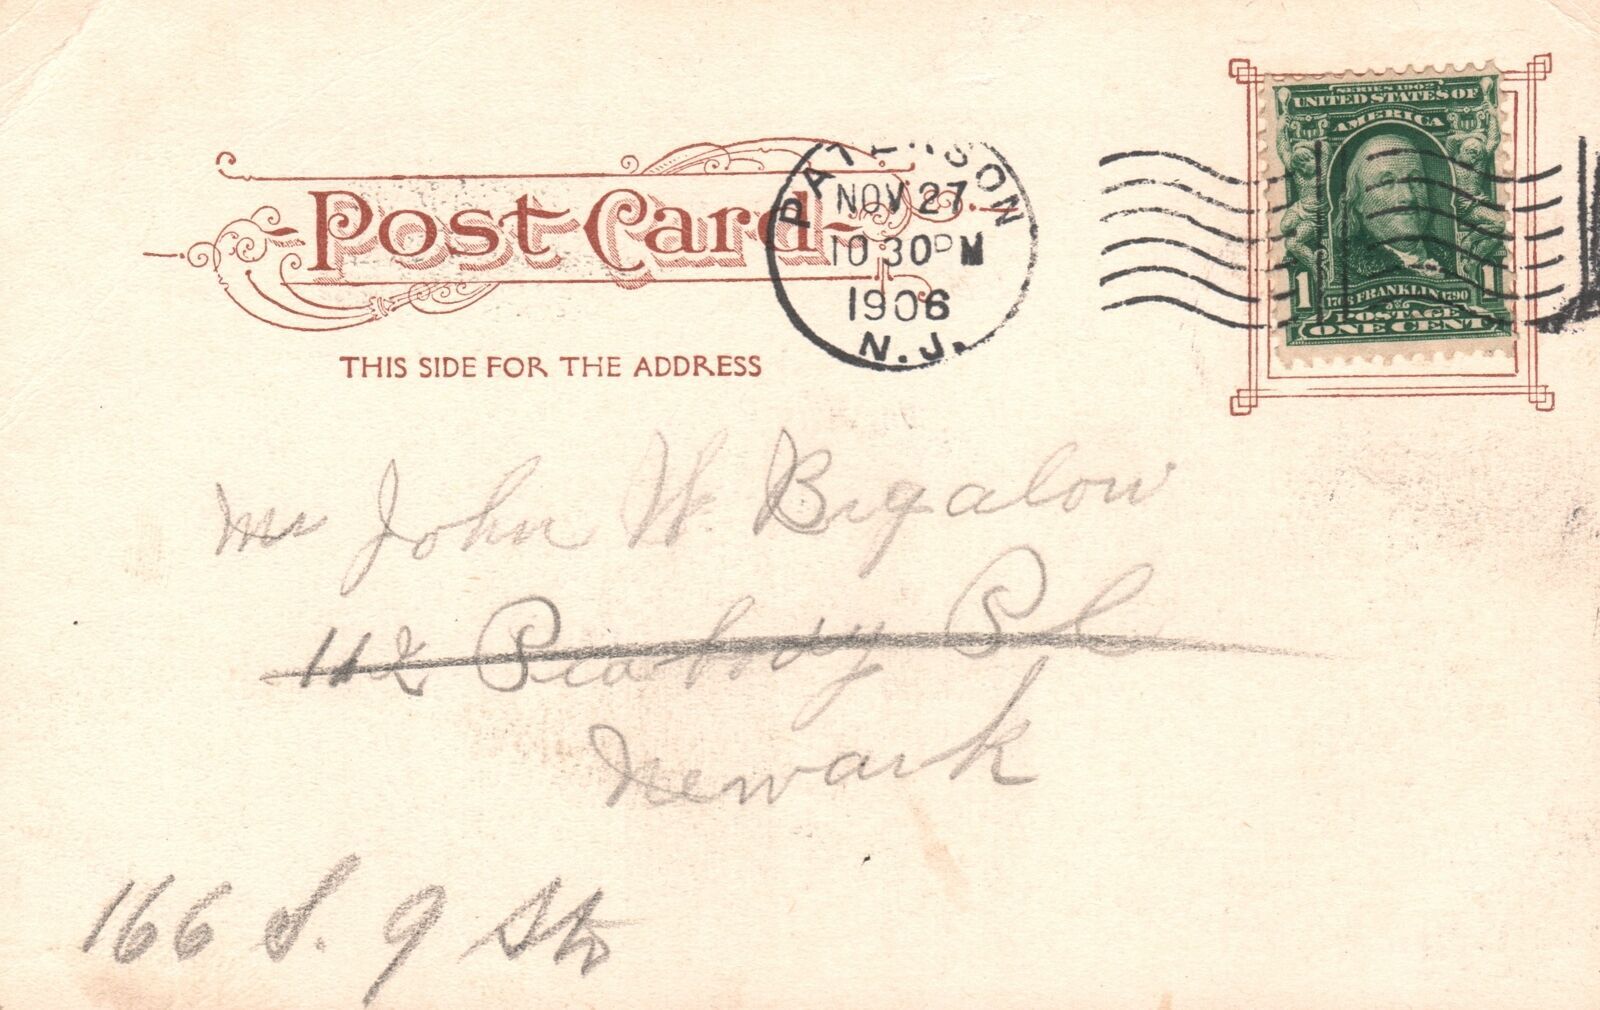 Post Card
THIS SIDE FOR THE ADDRESS
PATERSON
NOV 27
10 30 PM
1906
N.J.
SERIES 1902
UNITED STATES OF
AMERICA
1 1
1706 FRANKLIN 1790
POSTAGE
ONE CENT
Mr John W. Bigalow
112 Peabody Pl
Newark
166 S. 9 St